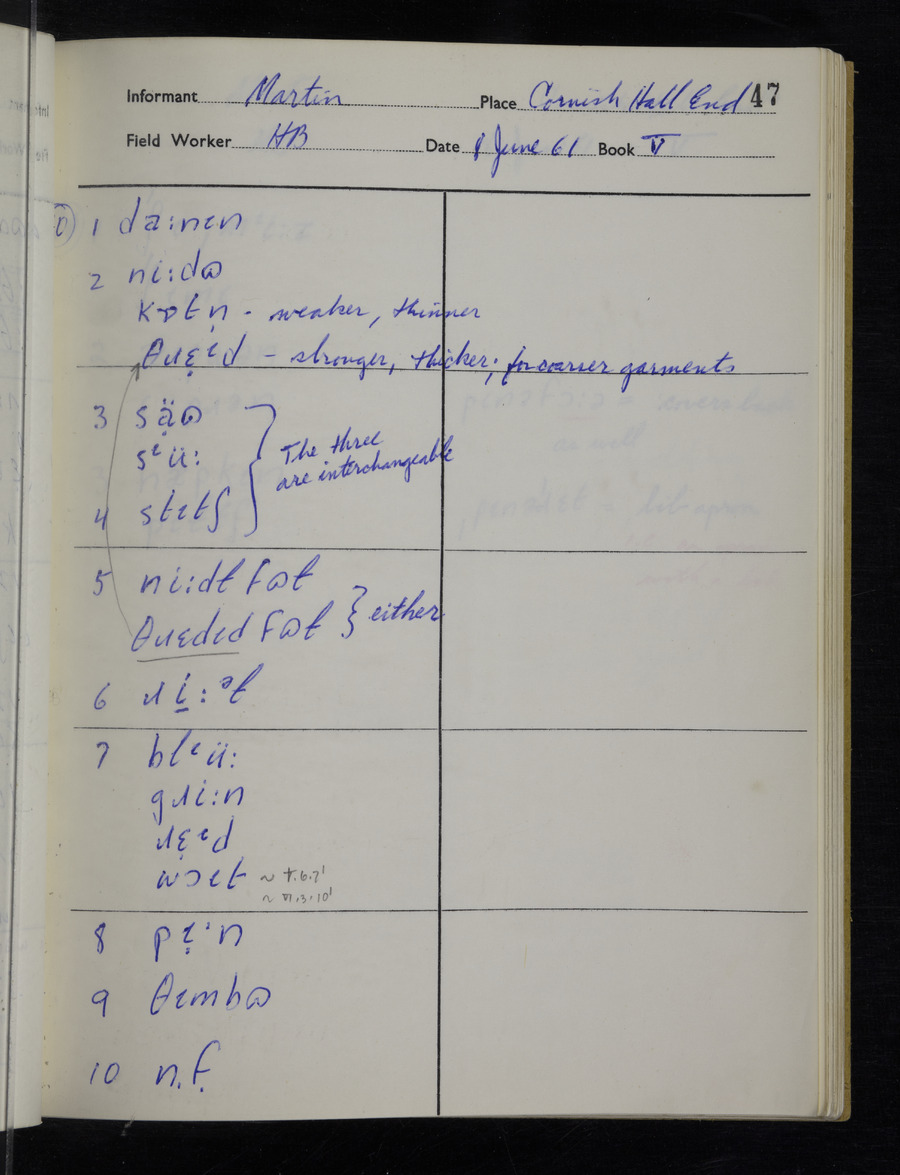 Informant Martin Place Cornish Hall End 47
Field Worker HB Date 8 June 61 Book V
1 da:nɪn
2 ni:dɷ
kɒtn̩ - weaker, thinner
θɹɛ̣ɪd - stronger, thicker; for coarser garments
3 sạ̈ɷ
sᵊü:
The three
are interchangeable
4 stɪtʃ
5 ni:dɫ fɷɫ
θɹɛdɪd fɷɫ } either
6 ɹi̠:ᵊɫ
7 blᵊü:
gɹi:n
ɹɛ̣ᵊd
wɔɪt ~ V.6.7¹
~ VI.3.10¹
8 pɪ̣ˑn
9 θɪmbɷ
10 n.f.